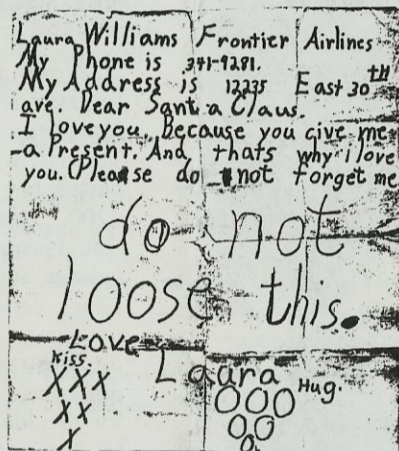 Laura Williams Frontier Airlines
My Phone is 341-9281.
My Address is 12235 East 30th
ave. Dear Santa Claus.
I love you. Because you give me
a Present. And thats why I love
you. Please do not forget me
do not
loose this.
Love
Kiss.
Laura
Hug.
XXX
OOO
XX
OO
X
O